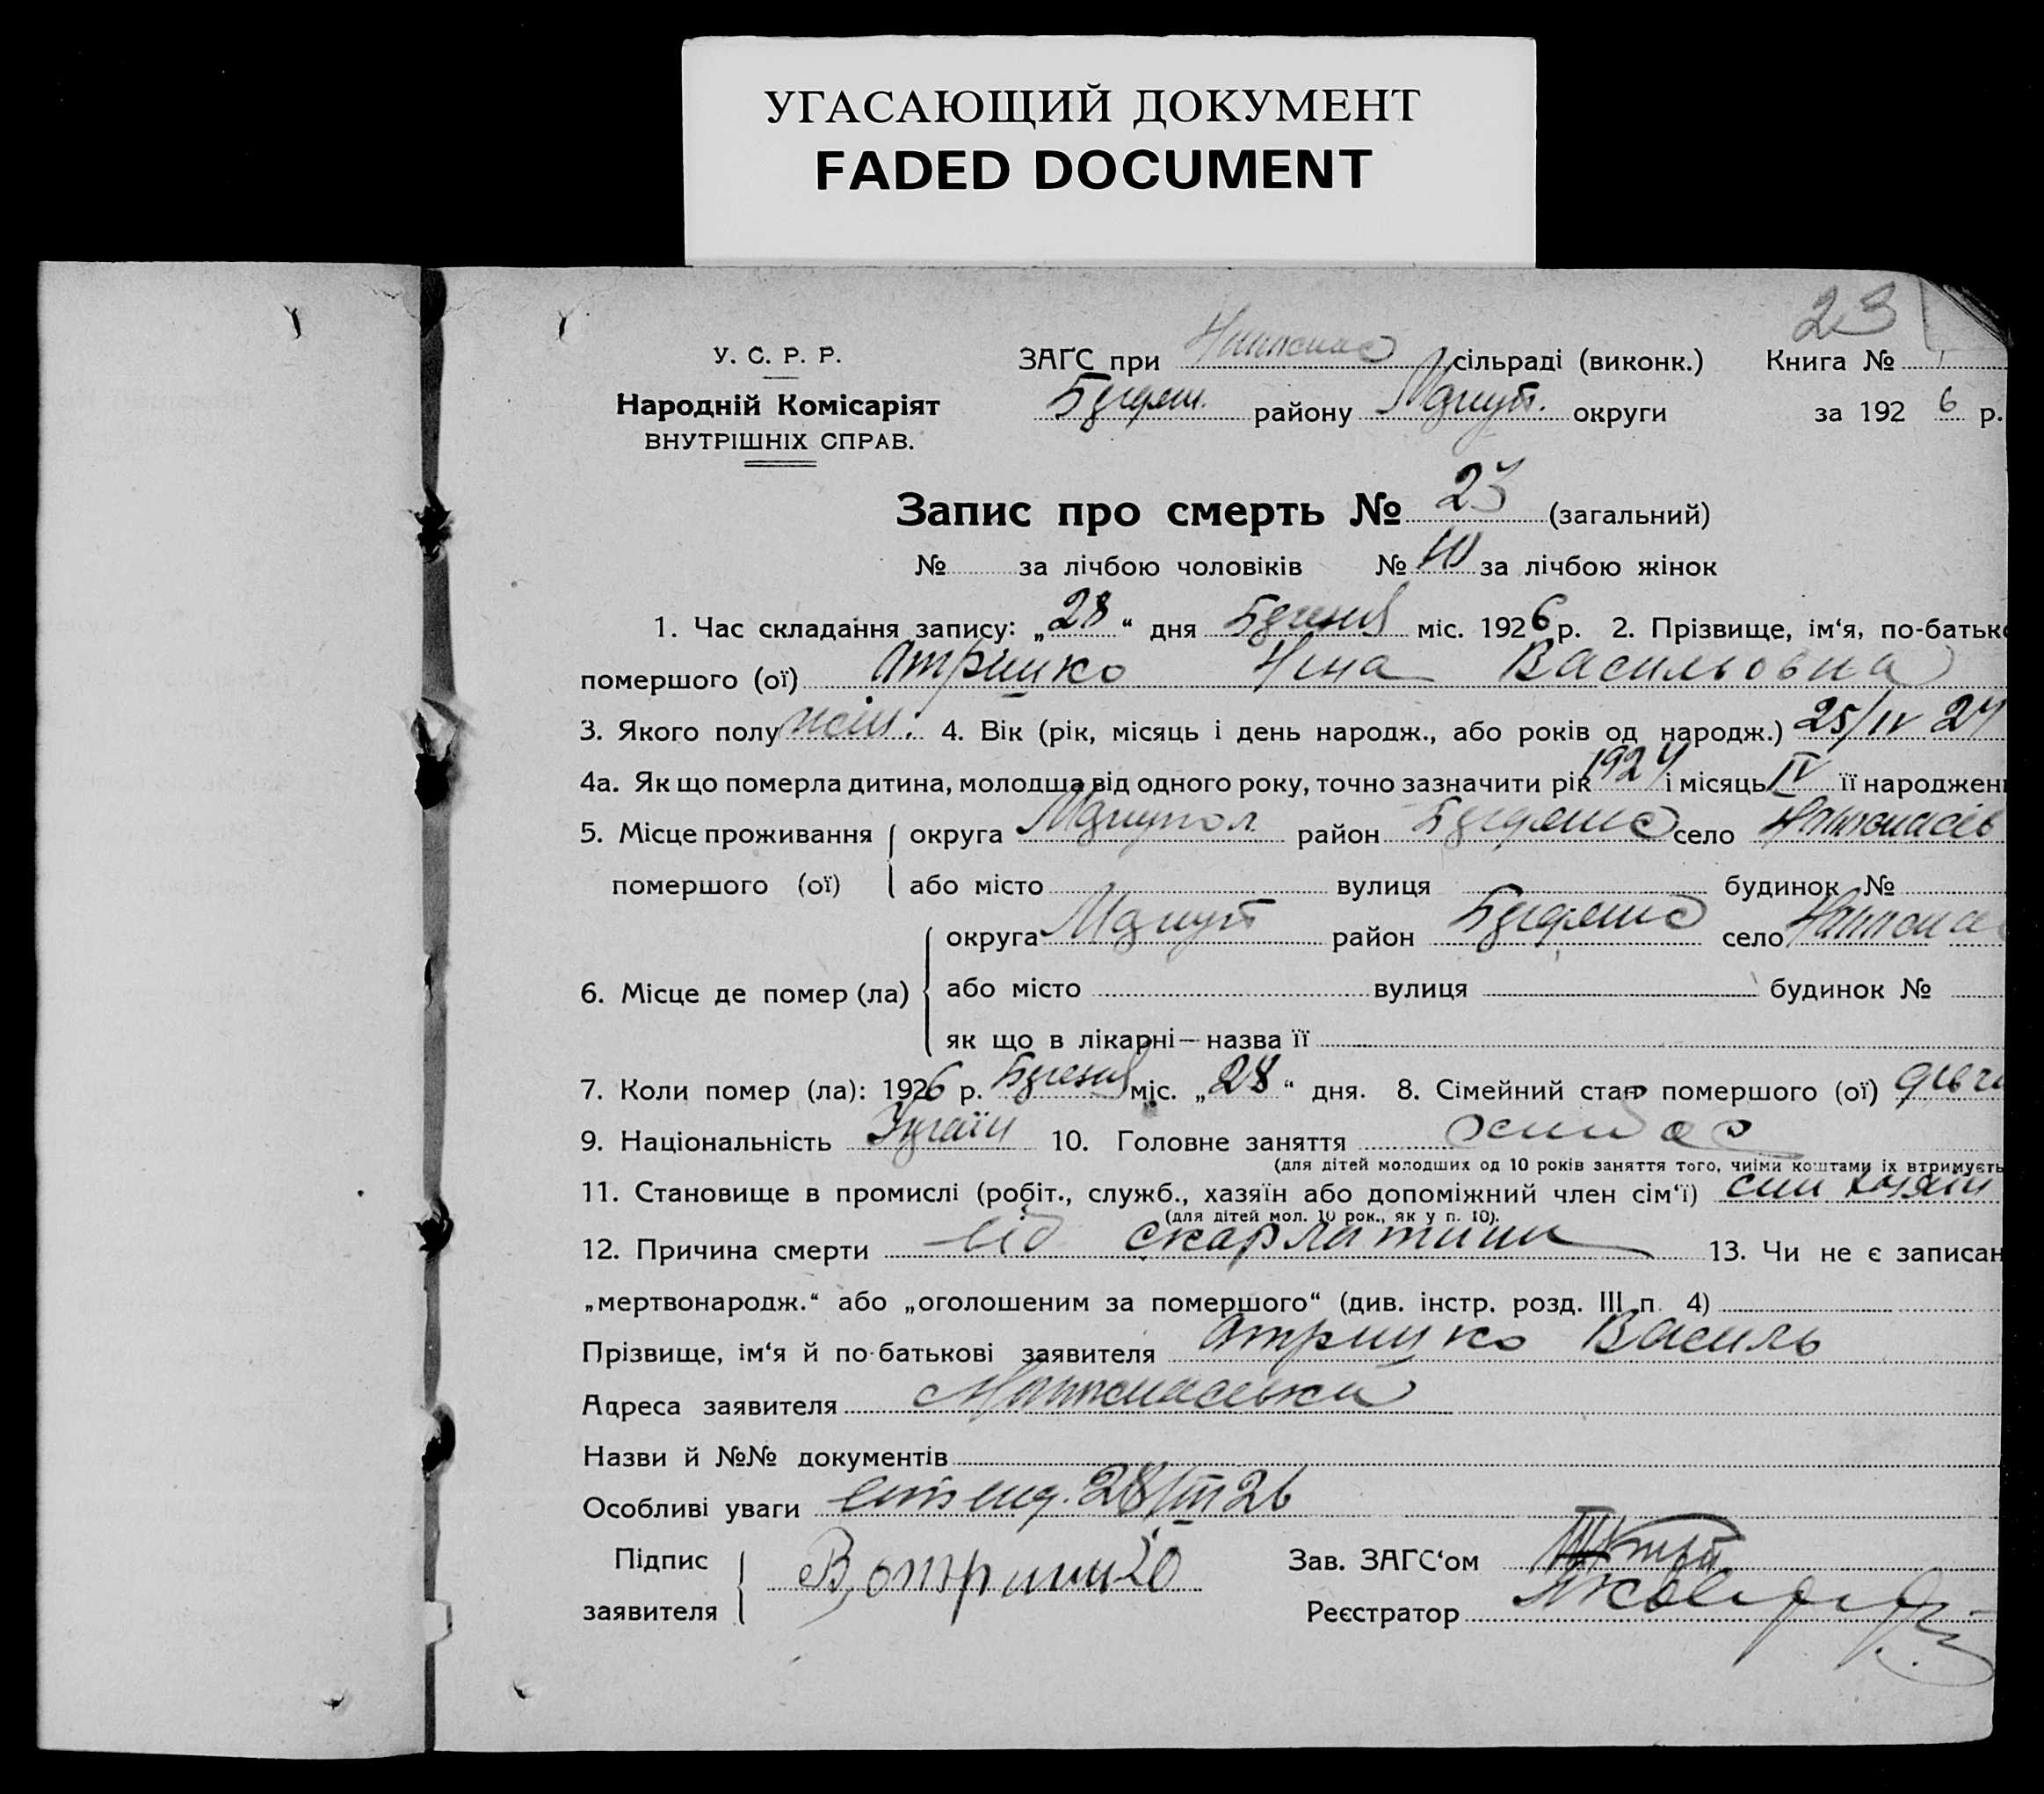 УГАСАЮЩИЙ ДОКУМЕНТ
FADED DOCUMENT
23
У. С. Р. Р. ЗАГС при сільраді (виконк.) Книга №
Народній Комісаріят району округи за 1926 р.
ВНУТРІШНІХ СПРАВ.
Запис про смерть № 23 (загальний)
№ за лічбою чоловіків № 10 за лічбою жінок
1. Час складання запису: „28“ дня міс. 1926 р. 2. Прізвище, ім‘я, по-батьк
помершого (ої) Отришко Ніна Васильовна
3. Якого полу жін. 4. Вік (рік, місяць і день народж., або років од народж.) 25/IV 24
4а. Як що померла дитина, молодща від одного року, точно зазначити рік 1924 і місяць IV її народжен
5. Місце проживання округа Маріупол район село
помершого (ої) або місто вулиця будинок №
округа Маріуп район село
6. Місце де помер (ла) або місто вулиця будинок №
як що в лікарні — назва її
7. Коли помер (ла): 1926 р. міс. „28“ дня. 8. Сімейний стан помершого (ої) дівчи
9. Національність Україн 10. Головне заняття хлібороб
(для дітей молодших од 10 років заняття того, чиїми коштами їх втримуєть
11. Становище в промислі (робіт., служб., хазяїн або допоміжний член сім‘ї) хазяїн
(для дітей мол. 10 рок., як у п. 10).
12. Причина смерти від скарлатини 13. Чи не є записан
„мертвонародж.“ або „оголошеним за помершого“ (див. інстр. розд. III п. 4)
Прізвище, ім‘я й по-батькові заявителя Отришко Василь
Адреса заявителя
Назви й №№ документів
Особливі уваги 28/III 26
Підпис В, отришко Зав. ЗАГС‘ом
заявителя Реєстратор